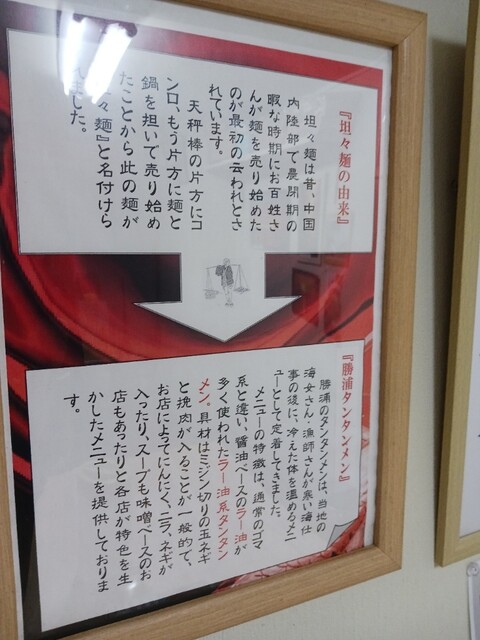 『坦々麺の由来』
坦々麺は昔、中国
内陸部で農閉期の
暇な時期にお百姓さ
んが麺を売り始めた
のが最初の云われとさ
れています。
天秤棒の片方にコ
ンロ、もう片方に麺と
鍋を担いで売り始め
たことから此の麺が
『坦々麺』と名付けら
れました。
『勝浦タンタンメン』
勝浦のタンタンメンは、当地の
海女さん・漁師さんが寒い海仕
事の後に、冷えた体を温めるメニ
ューとして定着してきました。
メニューの特徴は、通常のゴマ
系と違い、醤油ベースのラー油が
多く使われたラー油系タンタン
メン。具材はミジン切りの玉ネギ
と挽肉が入ることが一般的で、
お店によってにんにく、ニラ、ネギが
入ったり、スープも味噌ベースのお
店もあったりと各店が特色を生
かしたメニューを提供しておりま
す。